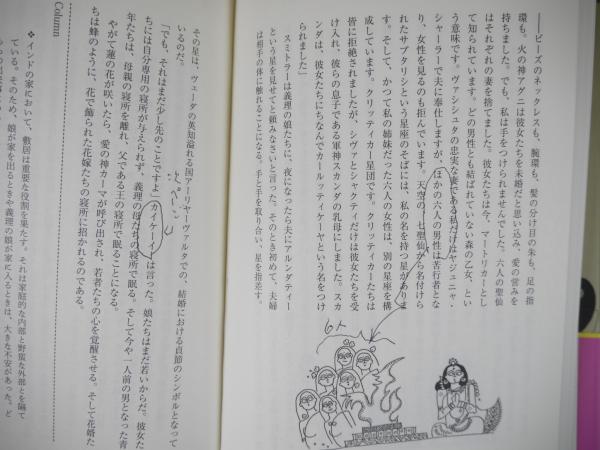 ――ビーズのネックレスも、腕環も、髪の分け目の朱も、足の指
環も。火の神アグニは彼女たちを未婚だと思い込み、愛の営みを
持ちました。でも、私は手をつけられませんでした。六人の聖仙
はそれぞれの妻を捨てました。彼女たちは今、マートリカーとし
て知られています。どの男性とも結ばれていない森の乙女、とい
う意味です。ヴァシシュタの忠実な妻である私だけはヤジュニャ・
シャーラーで夫に奉仕しますが、ほかの六人の男性は苦行者とな
り、女性を見るのも拒んでいます。天空の、七聖仙から名付けら
れたサプタリシという星座のそばには、私の名を持つ星がありま
す。そして、かつて私の姉妹だった六人の女性は、別の星座を構
成しています。クリッティカー星団です。クリッティカーたちは
皆に拒絶されましたが、シヴァとシャクティだけは彼女たちを受
け入れ、彼らの息子である軍神スカンダの乳母にしました。スカ
ンダは、彼女たちにちなんでカールッティケーヤという名をつけ
られました」
スミトラーは義理の娘たちに、夜になったら夫にアルンダティー
という星を見せてと頼みなさいと言った。そのとき初めて、夫婦
は相手の体に触れることになる。手と手を取り合い、星を指差す。
6人
その星は、ヴェーダの英知溢れる国アーリヤーヴァルタでの、結婚における貞節のシンボルとなって
いるのだ。
「でも、それはまだ少し先のことですよ」カイケーイーは言った。娘たちはまだ若いからだ。彼女た
ちには自分専用の寝所が与えられず、義理の母たちの寝所で眠る。そして今や一人前の男となった青
年たちは、母親の寝所を離れ、父である王の寝所で眠ることになる。
やがて蓮の花が咲いたら、愛の神カーマが呼び出され、若者たちの心を覚醒させる。そして花婿た
ちは蜂のように、花で飾られた花嫁たちの寝所に招かれるのである。
Column
❖インドの家において、敷居は重要な役割を果たす。それは家庭的な内部と野蛮な外部とを隔て
ている。そのため、娘が家を出るときや義理の娘が家に入るときは、大きな不安があった。ど